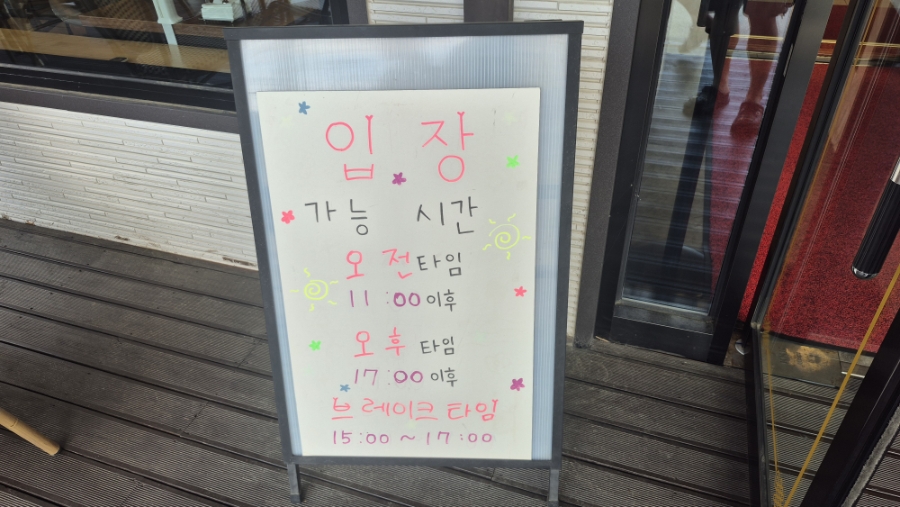 입 장
가능 시간
오 전 타임
11:00 이후
오 후 타임
17:00 이후
브레이크 타임
15:00 ~ 17:00